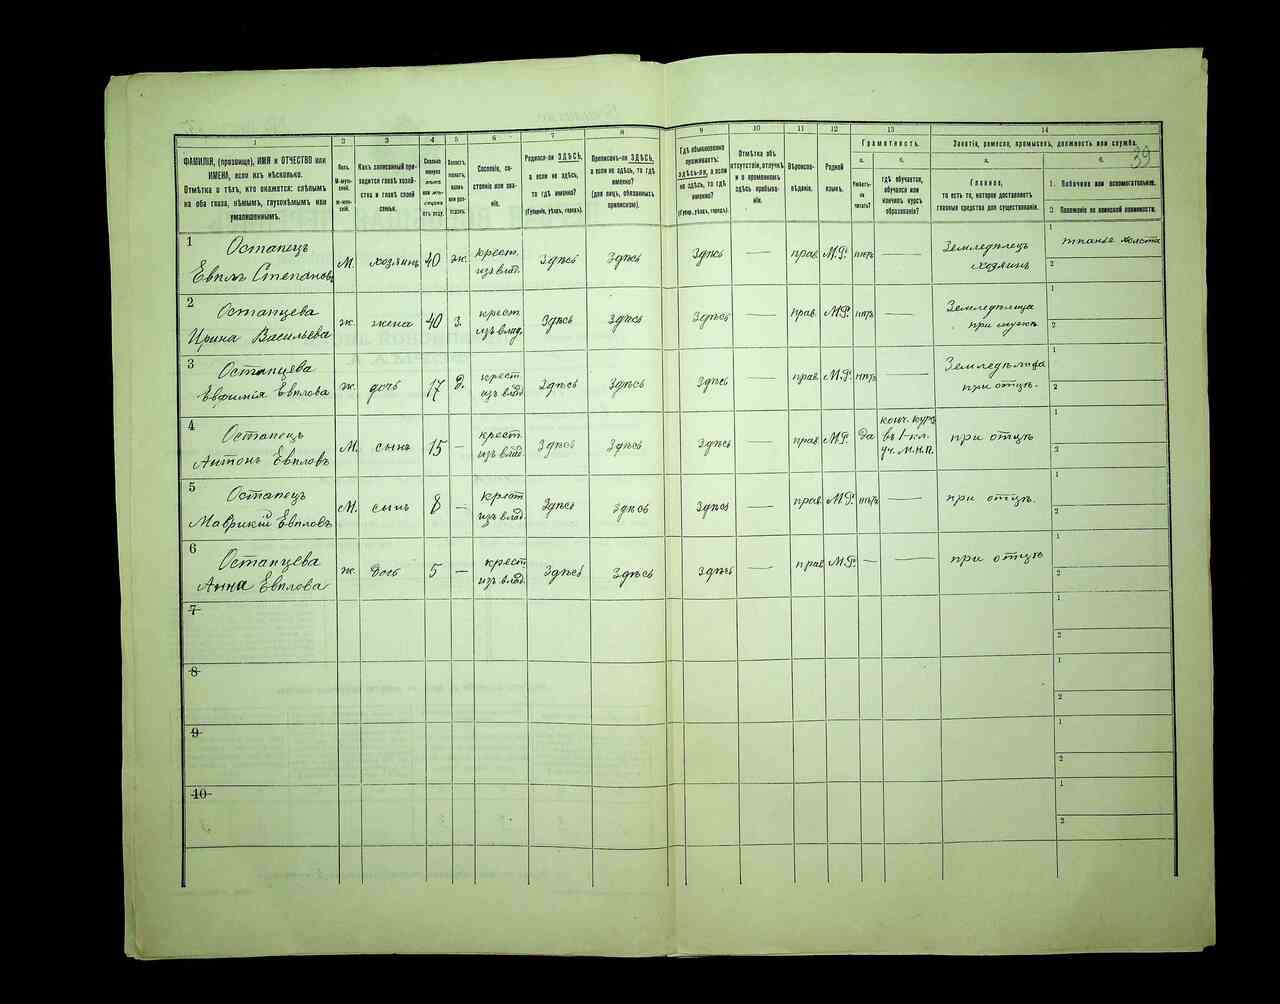 39
1 2 3 4 5 6 7 8 9 10 11 12 13 14
ФАМИЛІЯ, (прозвище), ИМЯ и ОТЧЕСТВО или ИМЕНА, если ихъ нѣсколько.
Отмѣтка о тѣхъ, кто окажется: слѣпымъ на оба глаза, нѣмымъ, глухонѣмымъ или умалишеннымъ.
Полъ.
М-мужской.
Ж-женскій.
Какъ записанный приходится главѣ хозяйства и главѣ своей семьи.
Сколько минуло лѣтъ или мѣсяцевъ отъ роду.
Холостъ, женатъ, вдовъ или разведенъ.
Сословіе, состояніе или званіе.
Родился-ли ЗДѢСЬ, а если не здѣсь, то гдѣ именно?
(Губернія, уѣздъ, городъ).
Приписанъ-ли ЗДѢСЬ, а если не здѣсь, то гдѣ именно?
(для лицъ, обязанныхъ припискою).
Гдѣ обыкновенно проживаетъ: здѣсь-ли, а если не здѣсь, то гдѣ именно?
(Губернія, уѣздъ, городъ)
Отмѣтка объ отсутствіи, отлучкѣ и о временномъ здѣсь пребываніи.
Вѣроисповѣданіе.
Родной языкъ.
Грамотность.
а. б.
Умѣетъ-ли читать?
гдѣ обучается, обучался или кончилъ курсъ образованія?
Занятія, ремесло, промыселъ, должность или служба.
а. б.
Главное,
то есть то, которое доставляетъ главныя средства для существованія.
1. Побочное или вспомогательное.
2. Положеніе по воинской повинности.
1 Остапецъ Евплъ Степановъ М. хозяинъ 40 ж. крест. изъ влад. Здѣсь Здѣсь Здѣсь — прав. М.Р. нѣтъ — Земледѣлецъ хозяинъ 1 тканье холста 2
2 Остапцева Ирина Васильева ж. жена 40 з. крест. изъ влад. Здѣсь Здѣсь Здѣсь — прав. М.Р. нѣтъ — Земледѣлица при мужѣ 1 2
3 Остапцева Евфимія Евплова ж. дочь 17 д. крест. изъ влад. Здѣсь Здѣсь Здѣсь — прав. М.Р. нѣтъ — Земледѣлица при отцѣ. 1 2
4 Остапецъ Антонъ Евпловъ М. сынъ 15 — крест. изъ влад. Здѣсь Здѣсь Здѣсь — прав. М.Р. да конч. курс. въ 1-кл. уч. М.Н.П. при отцѣ 1 2
5 Остапецъ Маврикій Евпловъ М. сынъ 8 — крест. изъ влад. Здѣсь Здѣсь Здѣсь — прав. М.Р. нѣтъ — при отцѣ. 1 2
6 Остапцева Анна Евплова ж. дочь 5 — крест. изъ влад. Здѣсь Здѣсь Здѣсь — прав. М.Р. — — при отцѣ 1 2
7 1 2
8 1 2
9 1 2
10 1 2